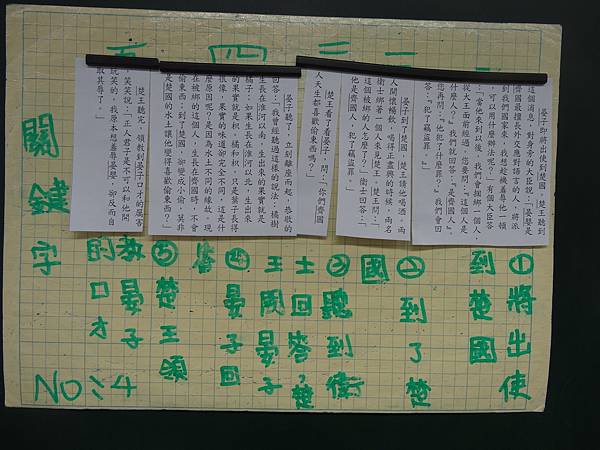 一
二
三
四
五
晏子即將出使到楚國。楚王聽到
這個消息，對身旁的大臣說：「晏嬰是
齊國最擅長外交應對語言的人，將派
到我們國家來，我想趁機羞辱他一頓
，可以用什麼辦法呢？」有個大臣答
：「當他來到以後，我們會捆綁一個人，
從大王面前經過，您要問：『這個人是
什麼人？』我們就回答：『是齊國人。』
您再問：『他犯了什麼罪？』我們會回
答：『犯了竊盜罪。』
晏子到了楚國，楚王請他喝酒。兩
人開懷暢飲，喝得正盡興的時候，兩名
衛士綁著一個人來見楚王。楚王問：「
這個被綁的人怎麼了？」衛士回答：「
他是齊國人，犯了竊盜罪。」
楚王看了看晏子，問：「你們齊國
人天生都喜歡偷東西嗎？」
晏子聽了，立刻離座而起，恭敬的
回答：「我曾經聽過這樣的說法：橘樹
生長在淮河以南，生出來的果實就是
橘子；如果生長在淮河以北，生出來
的果實就是枳。橘和枳，只是葉子長得
很像，果實的味道卻完全不同，這是什
麼原因呢？是因為水土不同的緣故。現
在被綁的這個人，生長在齊國時，不會
偷東西；到了楚國，卻變成小偷，莫非
是楚國的水土讓他變得喜歡偷東西？」
楚王聽完，領教到晏子口才的厲害
，笑笑說：「正人君子是不可以和他開
玩笑的，我原本想羞辱晏嬰，卻反而自
取其辱了。」
①將出使
到楚國
②到了楚
國
③聽到衛
士回答，楚
王問晏子
④晏子回
答
⑤楚王領
教晏子
的口才
關鍵字
NO：4